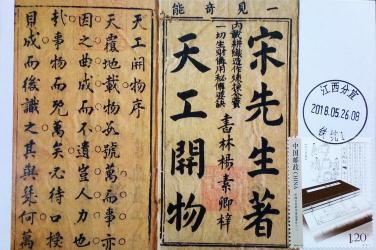 一見奇能
宋先生著
天工開物
書林楊素卿梓
内載耕織造作煉采金寶
一切生財備用秘傳要訣
天工開物序
天覆地載物數號萬而事亦
因之曲成而不遺豈人力也
哉事物而既萬矣必待口授
目成而後識之其與幾何萬
江西分宜
2018.05.26.08
中国邮政
CHINA
1.20